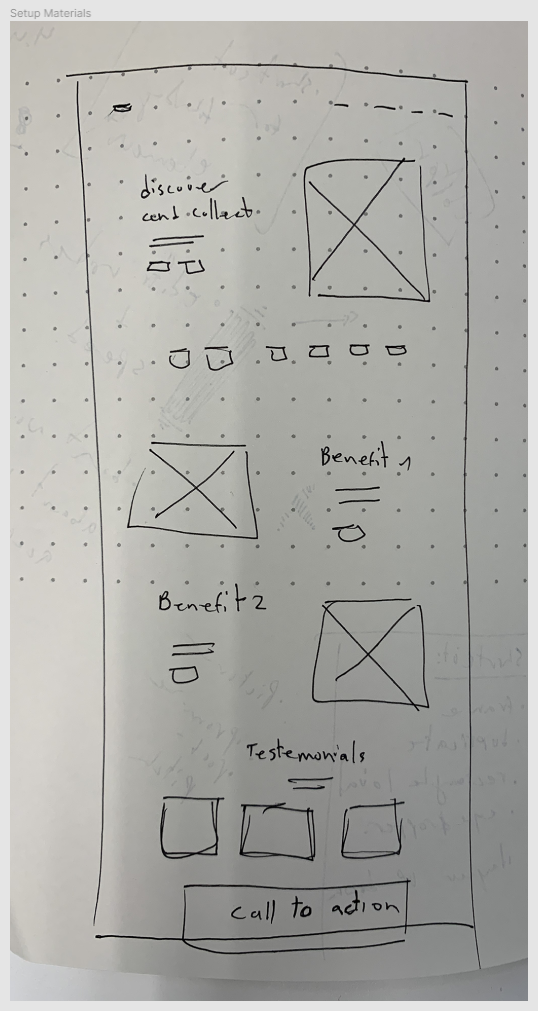 Setup Materials
discover
and collect
Benefit 1
Benefit 2
Testemonials
Call to action